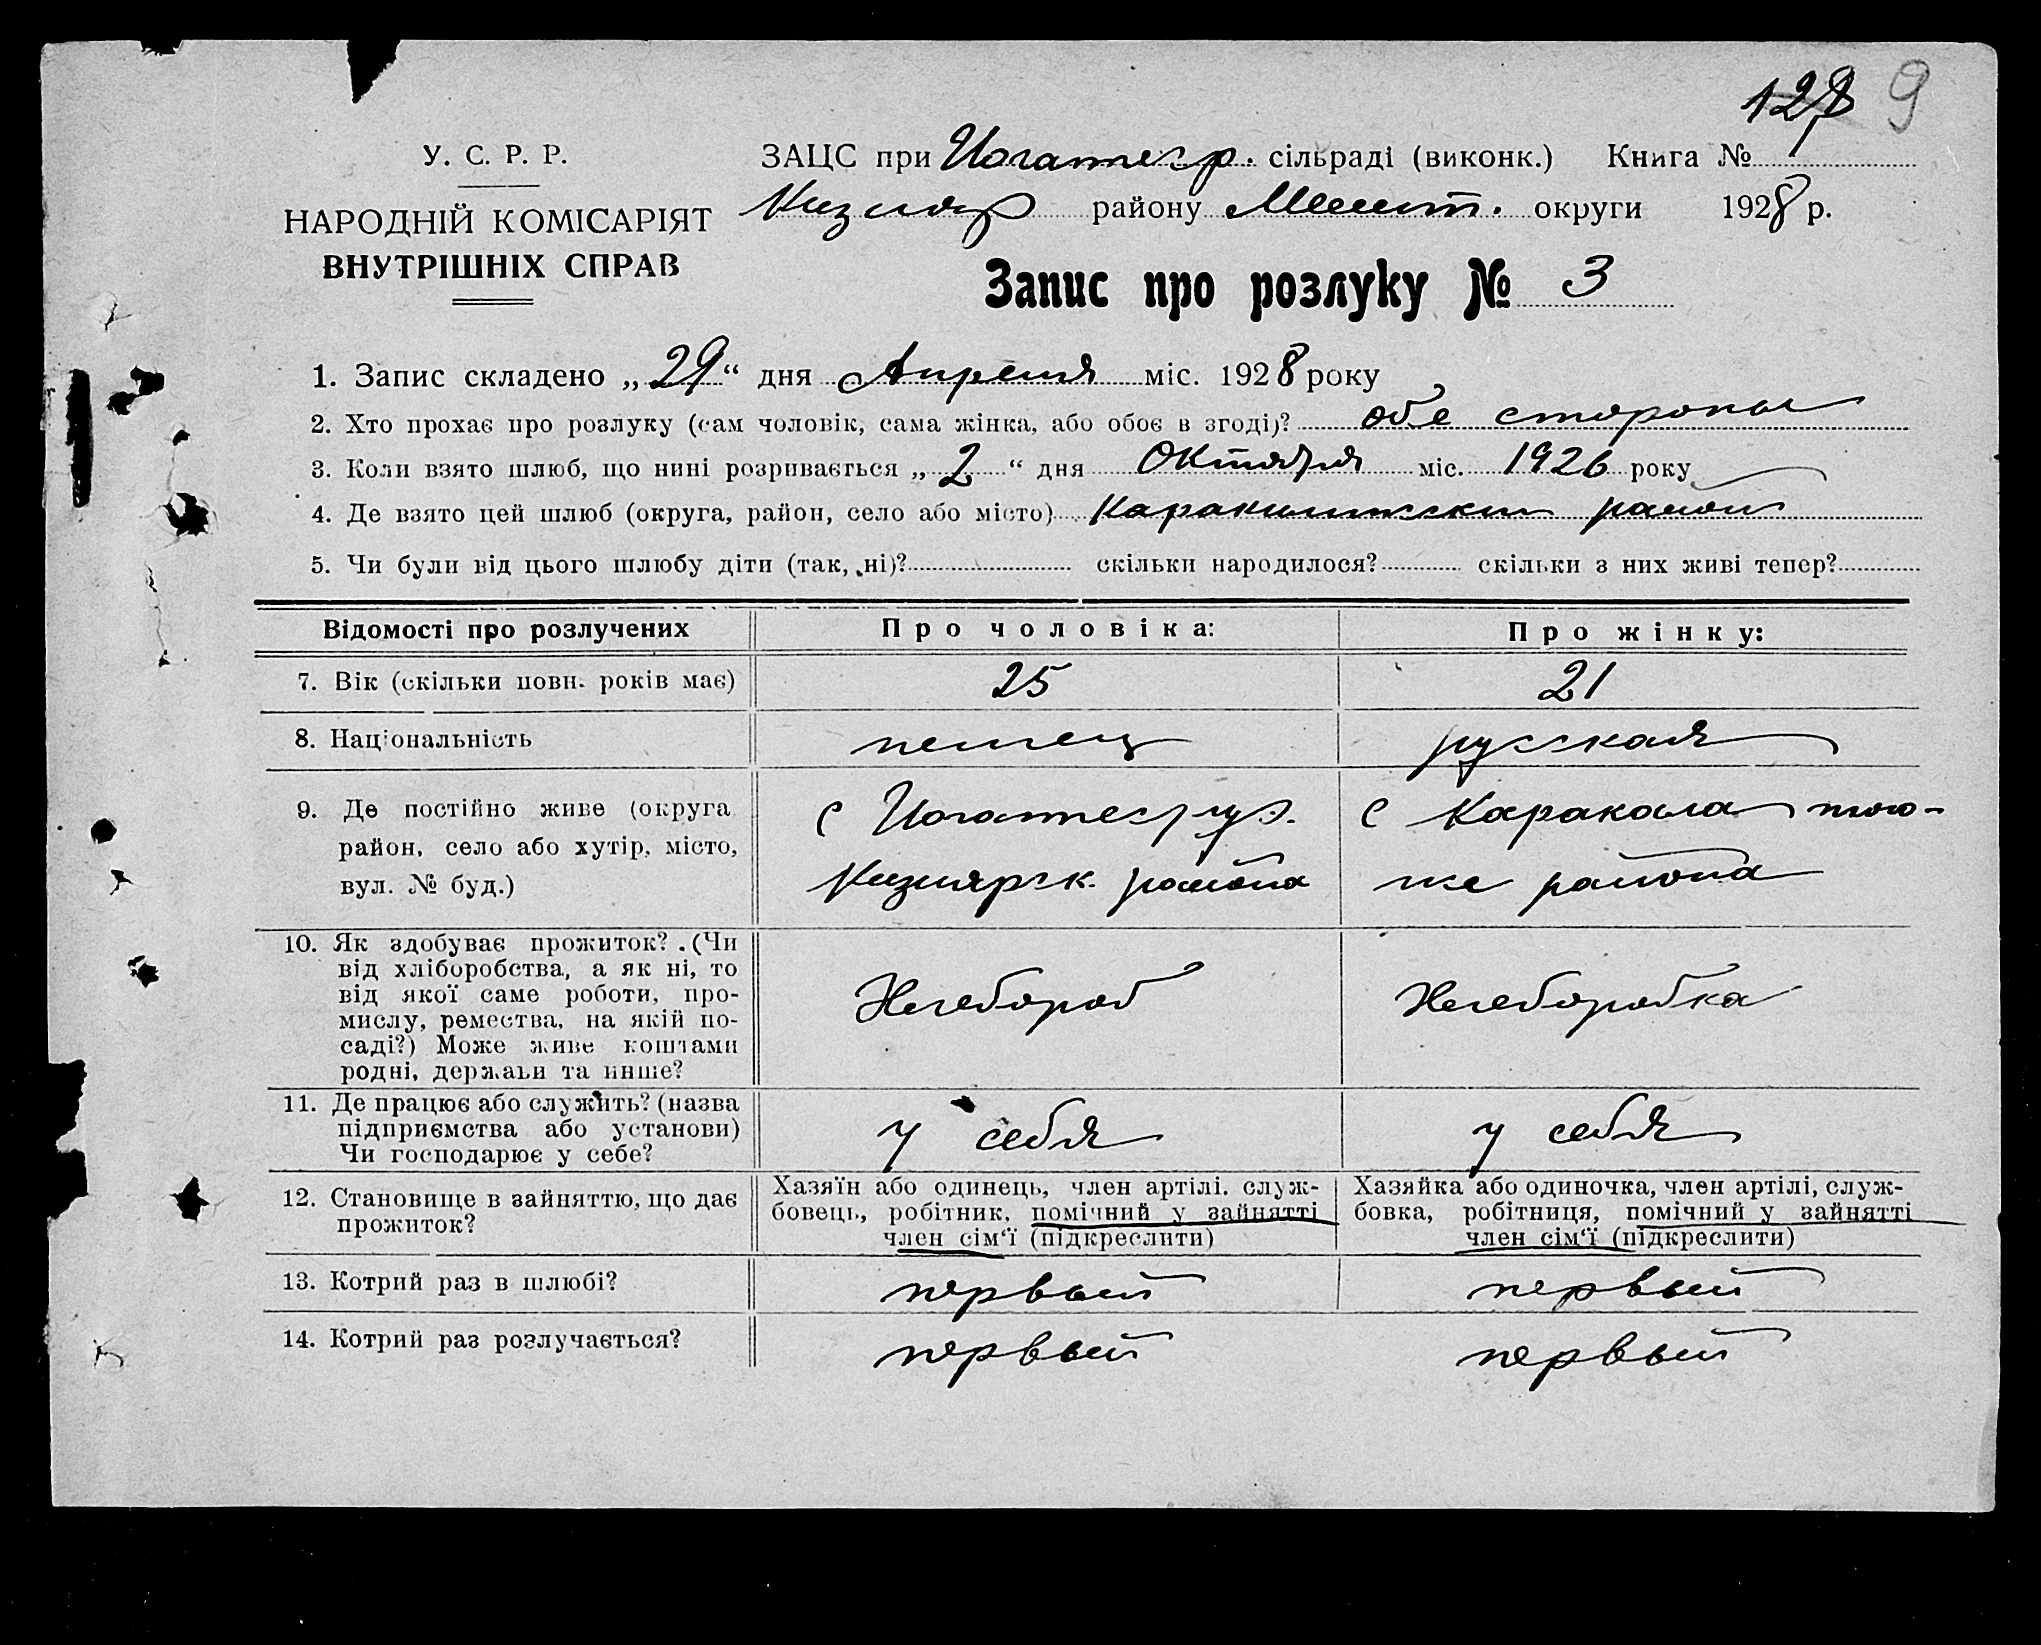 128 9
У. С. Р. Р.
НАРОДНІЙ КОМІСАРІЯТ
ВНУТРІШНІХ СПРАВ
ЗАЦС при Иогатеср. сільраді (виконк.) Книга №
Кизияр району Мелит. округи 1928 р.
Запис про розлуку № 3
1. Запис складено „29“ дня Апреля міс. 1928 року
2. Хто прохає про розлуку (сам чоловік, сама жінка, або обоє в згоді)? обе стороны
3. Коли взято шлюб, що нині розривається „2“ дня Октября міс. 1926 року
4. Де взято цей шлюб (округа, район, село або місто) район
5. Чи були від цього шлюбу діти (так, ні)? скільки народилося? скільки з них живі тепер?
Відомості про розлучених Про чоловіка: Про жінку:
7. Вік (скільки повн. років має) 25 21
8. Національність немец русская
9. Де постійно живе (округа
район, село або хутір, місто,
вул. № буд.)
с Иогатесруэ.
Кизиярск. района
с Каракала того-
же района
10. Як здобуває прожиток? (Чи
від хліборобства, а як ні, то
від якої саме роботи, про-
мислу, ремества, на якій по-
саді?) Може живе коштами
родні, держави та инше?
Хлебороб Хлеборобка
11. Де працює або служить? (назва
підприємства або установи)
Чи господарює у себе?
у себя у себя
12. Становище в зайняттю, що дає
прожиток?
Хазяїн або одинець, член артілі, служ-
бовець, робітник, помічний у зайнятті
член сім'ї (підкреслити)
Хазяйка або одиночка, член артілі, служ-
бовка, робітниця, помічний у зайнятті
член сім'ї (підкреслити)
13. Котрий раз в шлюбі? первый первый
14. Котрий раз розлучається? первый первый